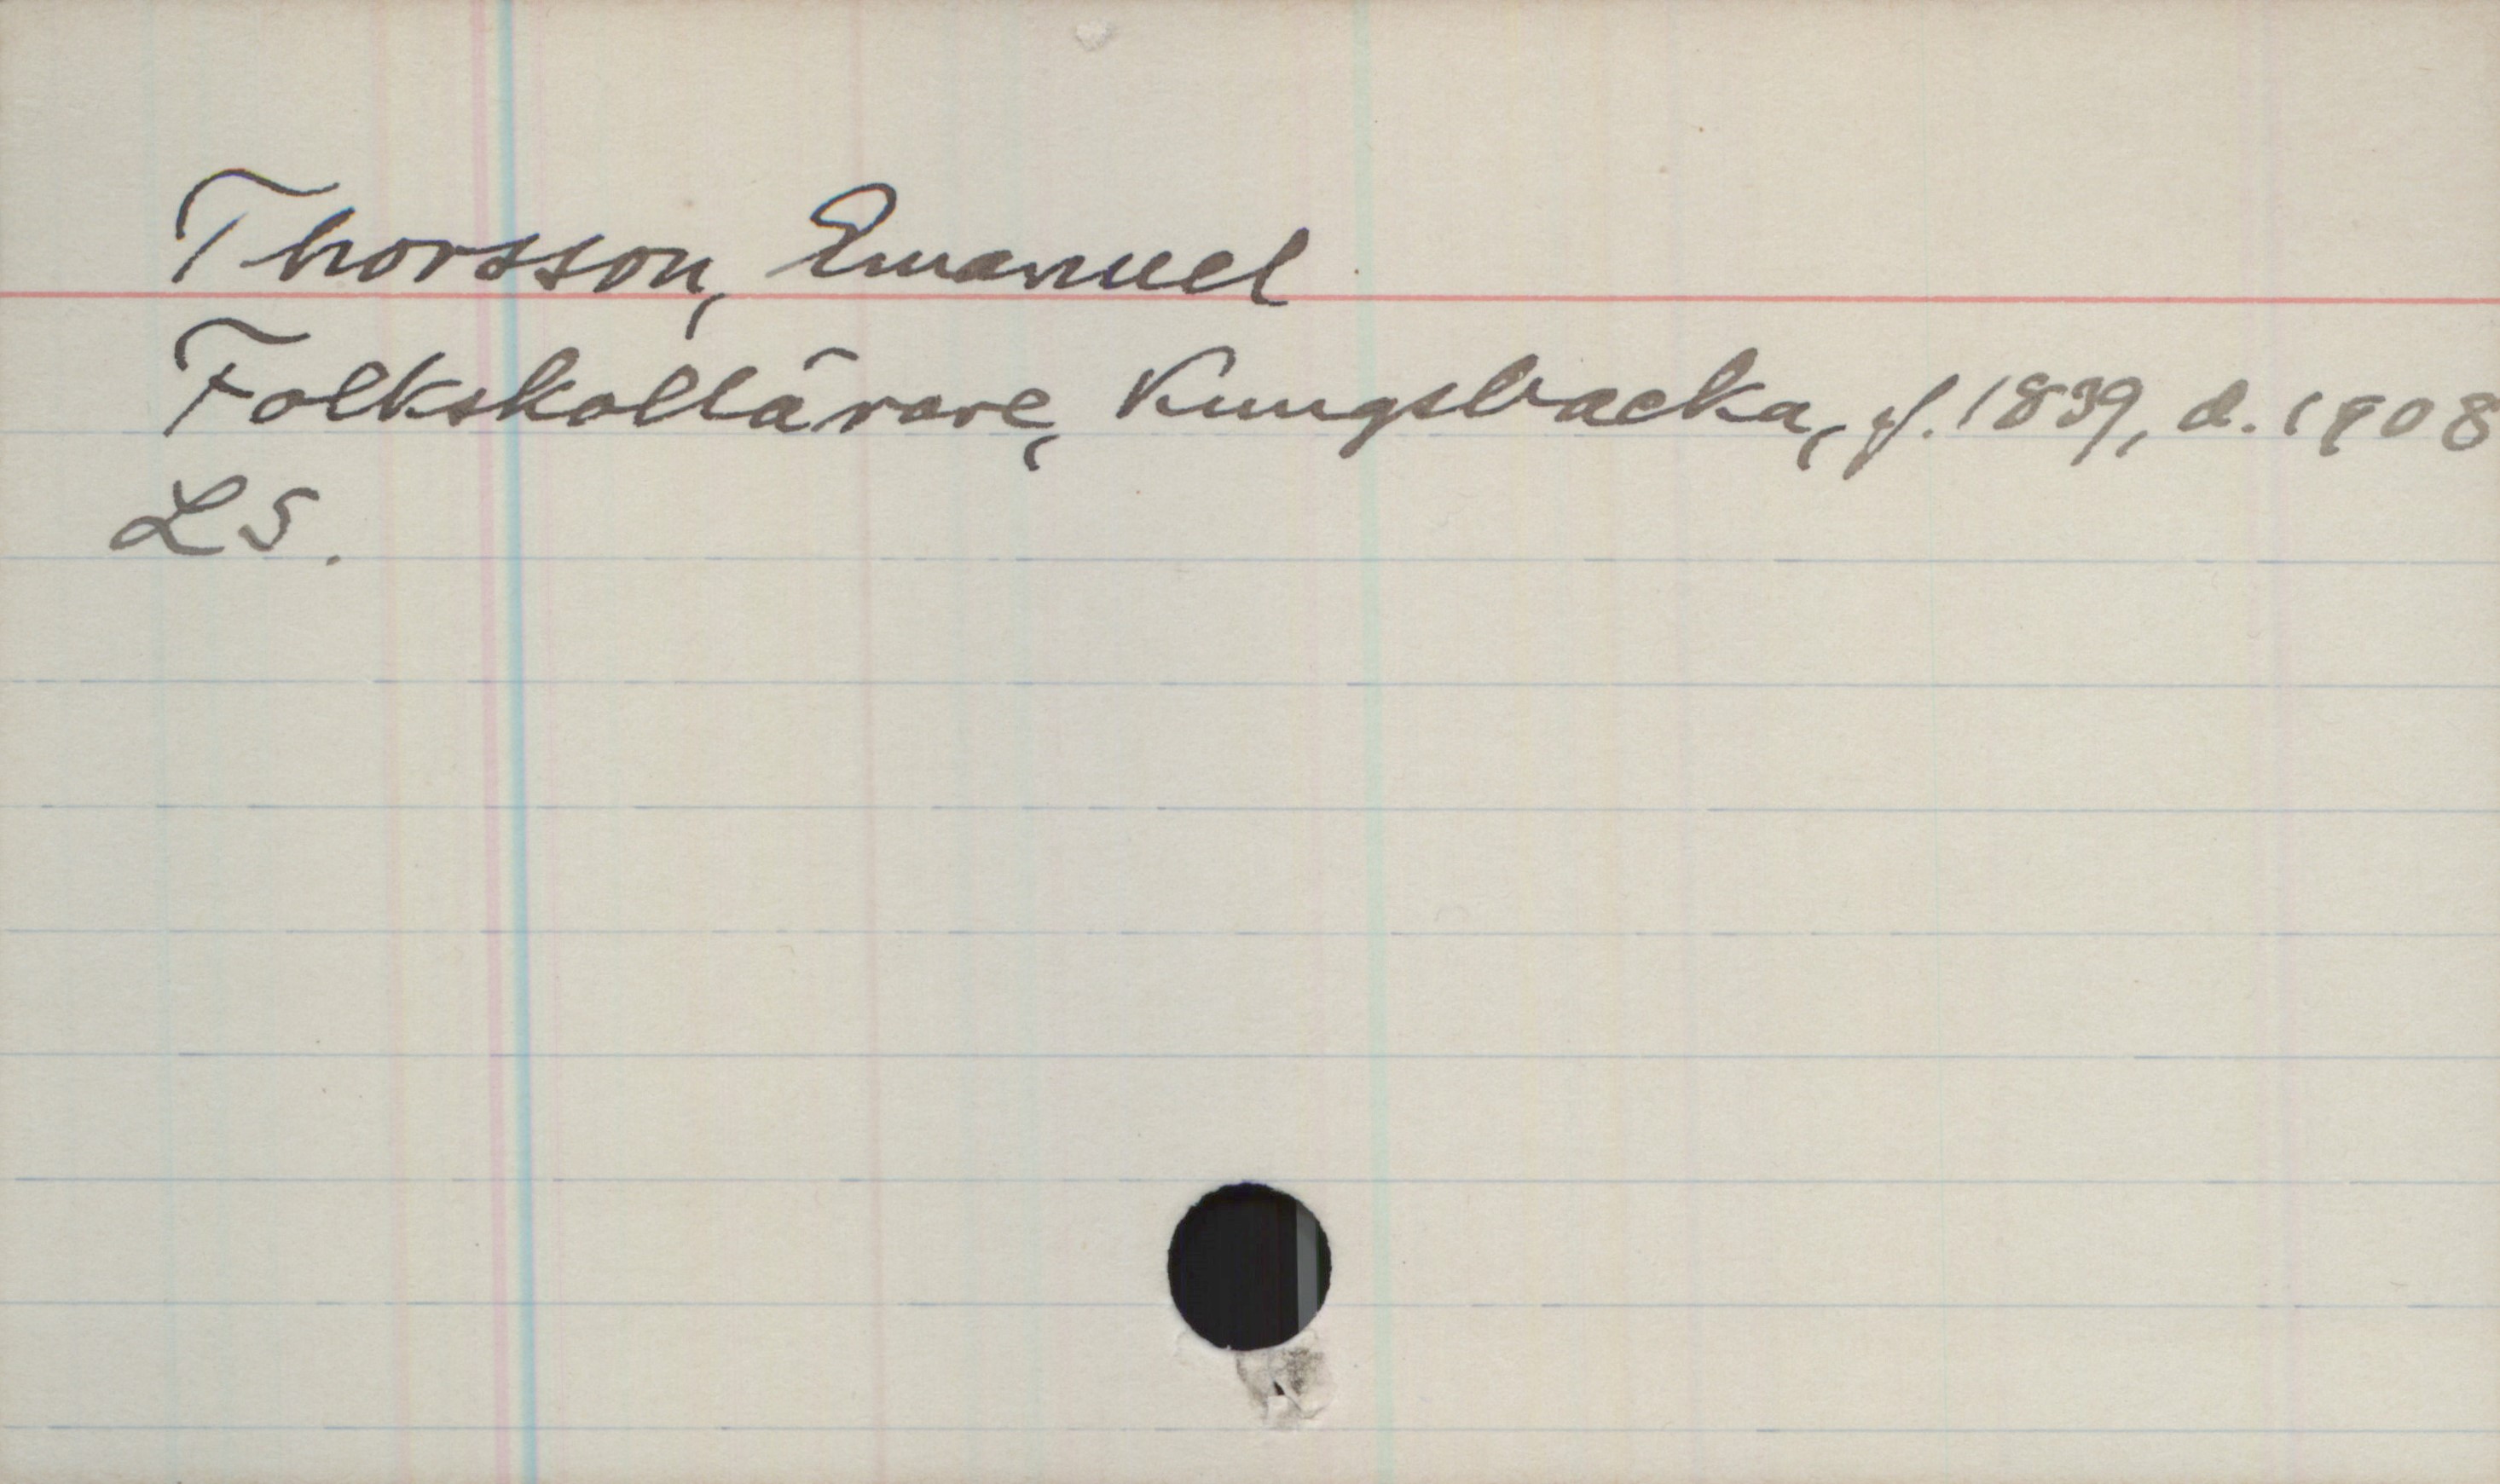 Thorsson, Emanuel
Folkskollärare, Kungsbacka, f. 1839, d. 1908
LS.